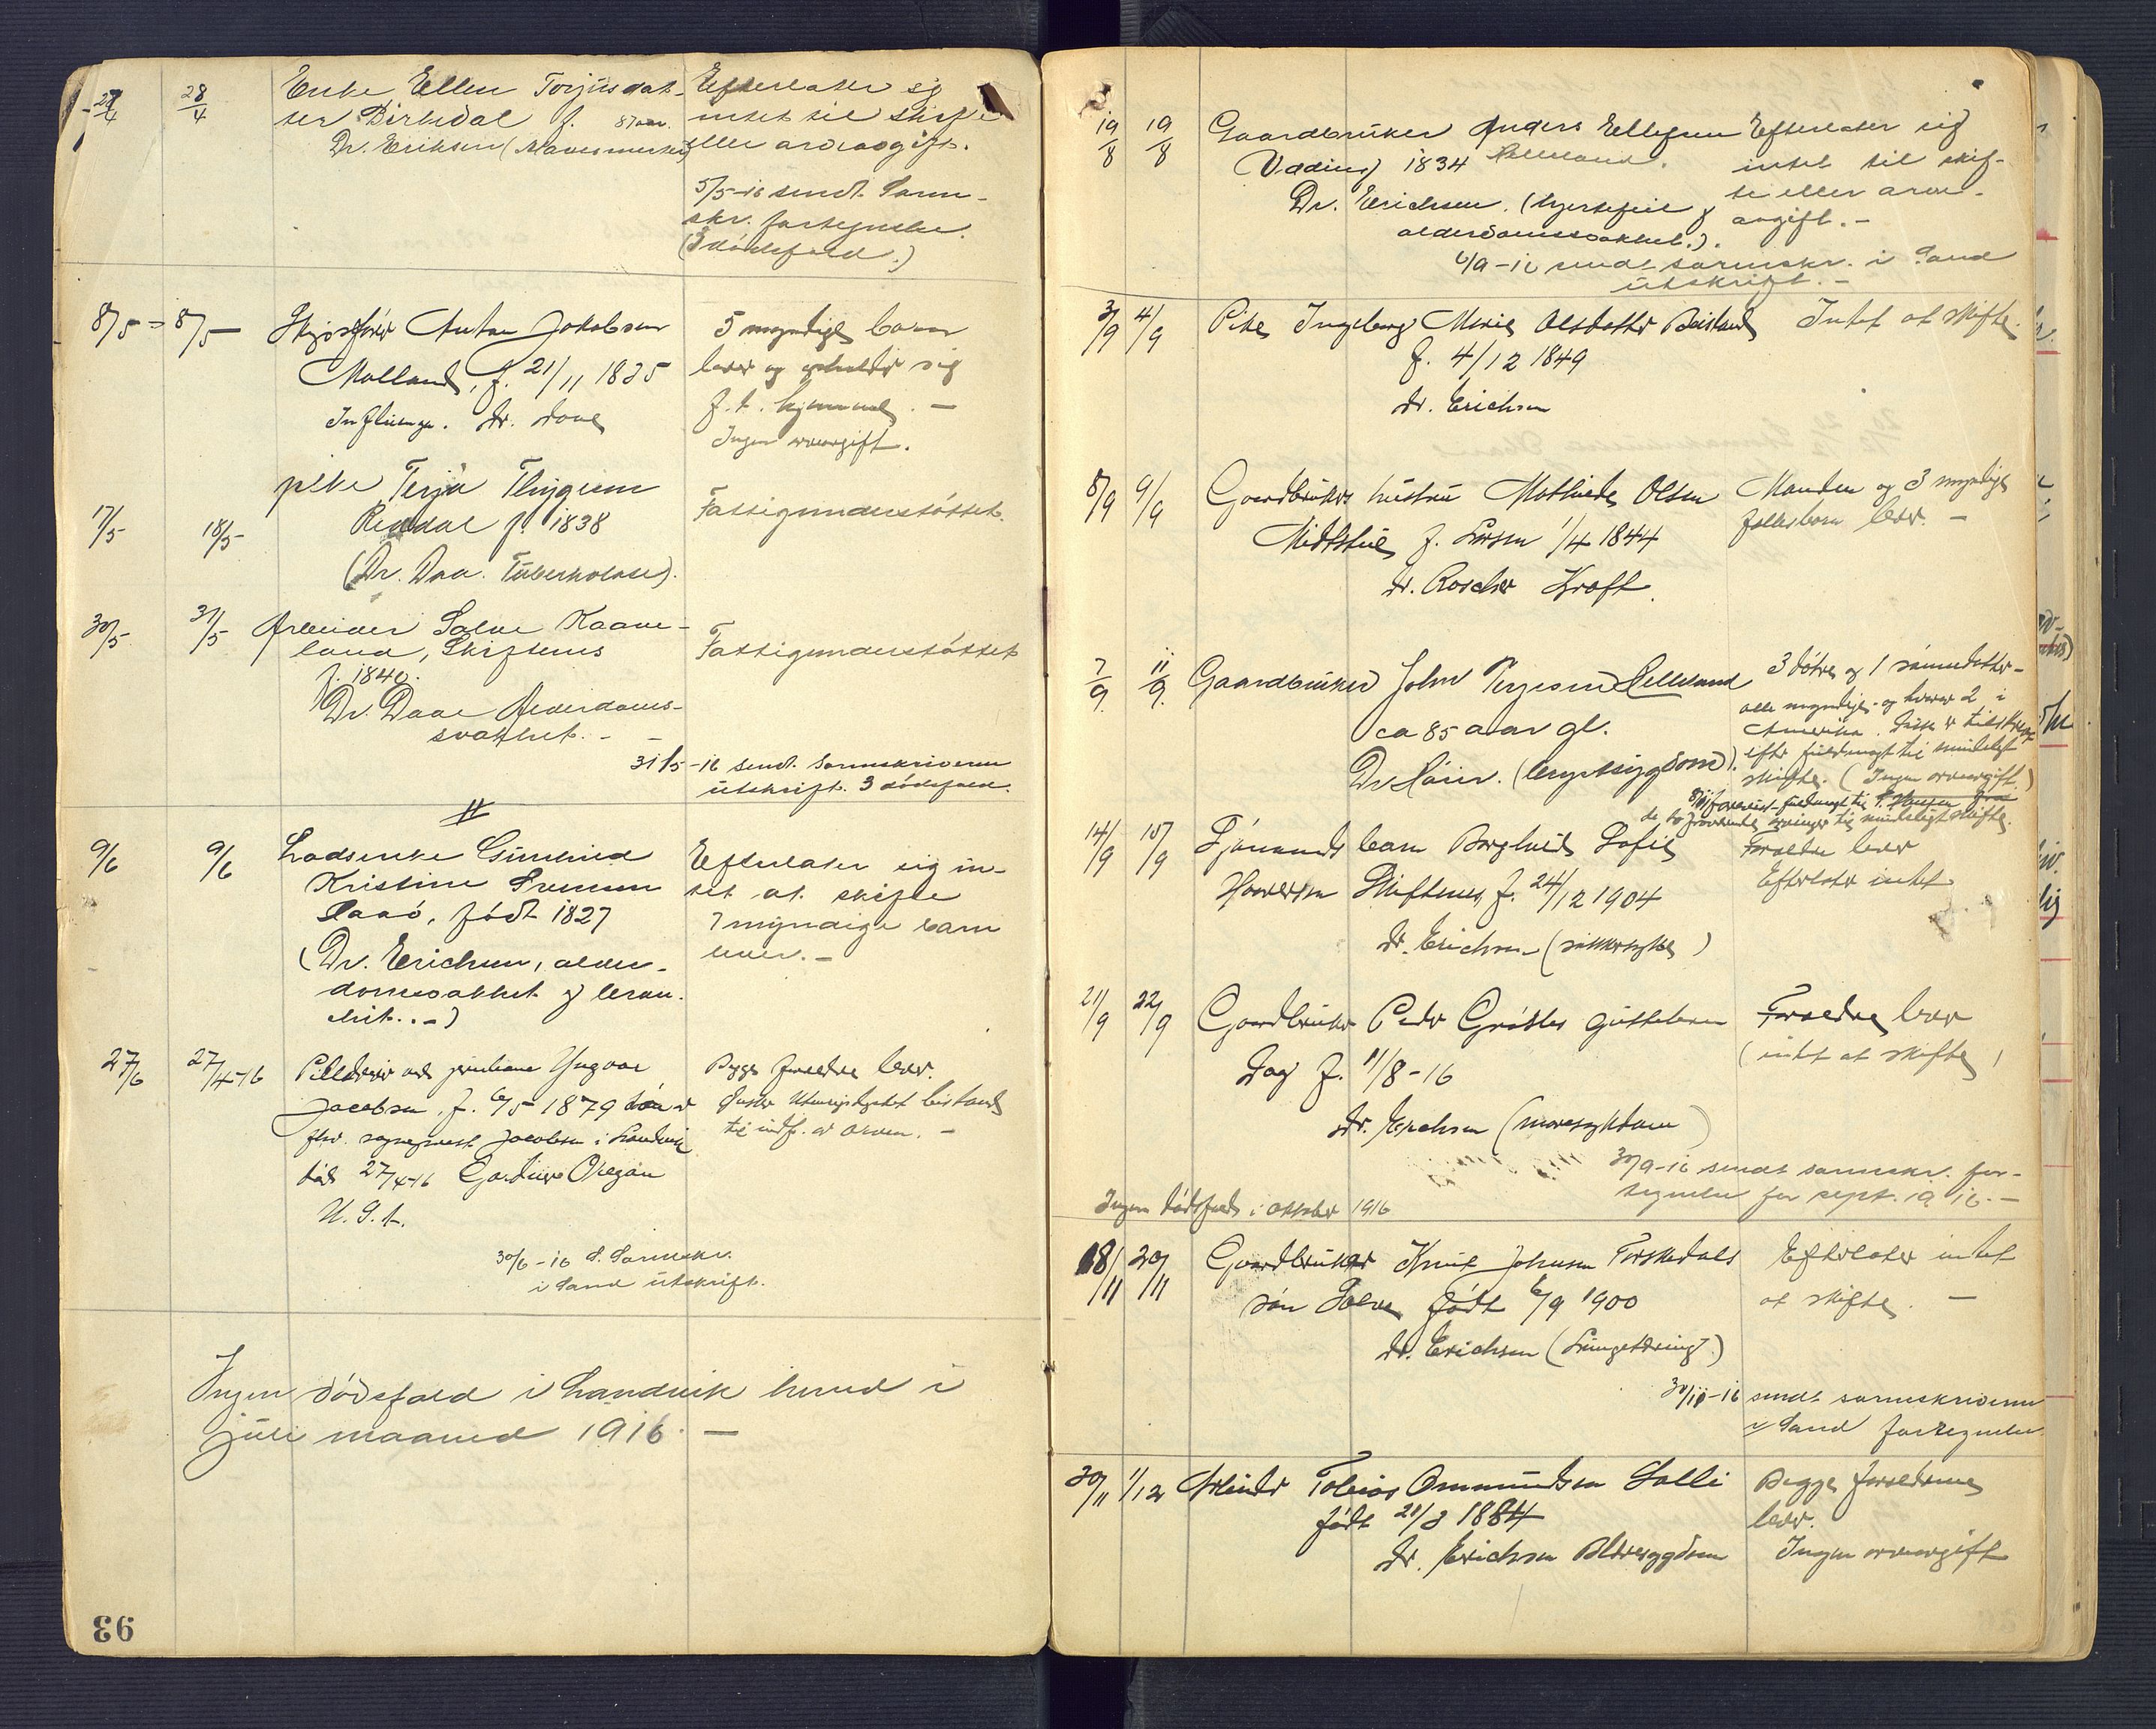 27/4 28/4 Enke Ellen Torjusdat-
ter Birkedal f. 87 aar.
Dr. Eriksen
Efterlater sig
intet til skifte
eller arveavgift.
5/5-16 sendt Soren-
skr. fortegnelse.
(3 dødsfald.)
8/5 = 8/5 Skipsfører Anton Jakobsen
Molland, f. 21/11 1835
Influenza. Dr. Daae
5 myndige barn
lever og opholder sig
f.t. hjemme. —
Ingen arveavgift.
17/5 18/5 pike Terju Thygesen
Reddal f. 1838
(Dr. Daa. Tuberkolose).
Fattigunderstøttet.
30/5 31/5 Arbeider Salve Kaave-
land, Skiftenes
f. 1840.
Dr. Daae Alderdoms-
svakhet. - -
Fattigunderstøttet
31/5-16 sendt Sorenskriveren
utskrift. 3 dødsfald.
9/6 9/6 Losenke Gunhild
Kristine Svensen
Saaø, født 1827
(Dr. Erichsen, alder-
domssvakhet og bron-
chit. -)
Efterlater sig in-
tet at skifte
7 myndige barn
lever. -
27/6 27/4-16 ved jernbane Yngvar
Jacobsen, f. 6/5 1879 søn av
fhv. sogneprest Jacobsen i Landvik
død 27/4-16 Oregon
U.S.A.
Begge forældre lever.
Ønsker Utenrigsstyret bistand
til indf. av arven. -
30/6-16 S. Sorenskr.
i Sand utskrift.
Ingen dødsfald i Landvik herred i
juli maaned 1916. —
93
19/8 19/8 Gaardbruker Anders Ellefsen
1834
Dr. Erichsen. (hjertefeil og
alderdomssvakhet.).
Efterlater sig
intet til skif-
te eller arve-
avgift. -
1/9-16 sendt sorenskr. i Sand
utskrift. -
3/9 4/9 Pike Ingeborg Marie Olsdatter Beisland
f. 4/12 1849
Dr. Erichsen
Intet at skifte.
8/9 9/9 Gaardbrukers hustru Mathilde Olsen
Midtstue f. Larsen 1/4 1844
Dr. Roscher Kraft.
Manden og 3 myndige
fellesbarn lever. -
7/9 11/9 Gaardbruker John Terjesen Lelleland
ca 85 aar gl.
Dr. (brystsygdom).
3 døtre og 1 sønnedatter-
alle myndige - og hvorav 2 i
Amerika.
efter fuldmagt til mindelig
skifte. (Ingen arveavgift.)
til mindeligt skifte.
14/9 15/9 barn Borghild Sofie
Skiftenes, f. 24/12 1904
Dr. Erichsen - (sukkersyke)
Forældre lever
Efterlater intet
21/9 22/9 Gaardbruker Peder Grøsles guttebarn
Dag f. 11/8-16
Dr. Erichsen (mavesykdom)
Forældre lever
(intet at skifte)
30/9-16 sendt sorenskr. for-
tegnelse for sept. 1916. -
Ingen dødsfald i oktober 1916
18/11 20/11 Gaardbruker Knut Johnsen Forskedals
søn Salve født 6/9 1900
Dr. Erichsen (Lungetæring)
Efterlater intet
at skifte. —
30/11-16 sendt sorenskriveren
i Sand fortegnelse
30/11 1/12 Arbeider Tobias Ommundsen Salli
født 21/3 1884
Dr. Erichsen
Begge forældrene
lever.
Ingen arveavgift